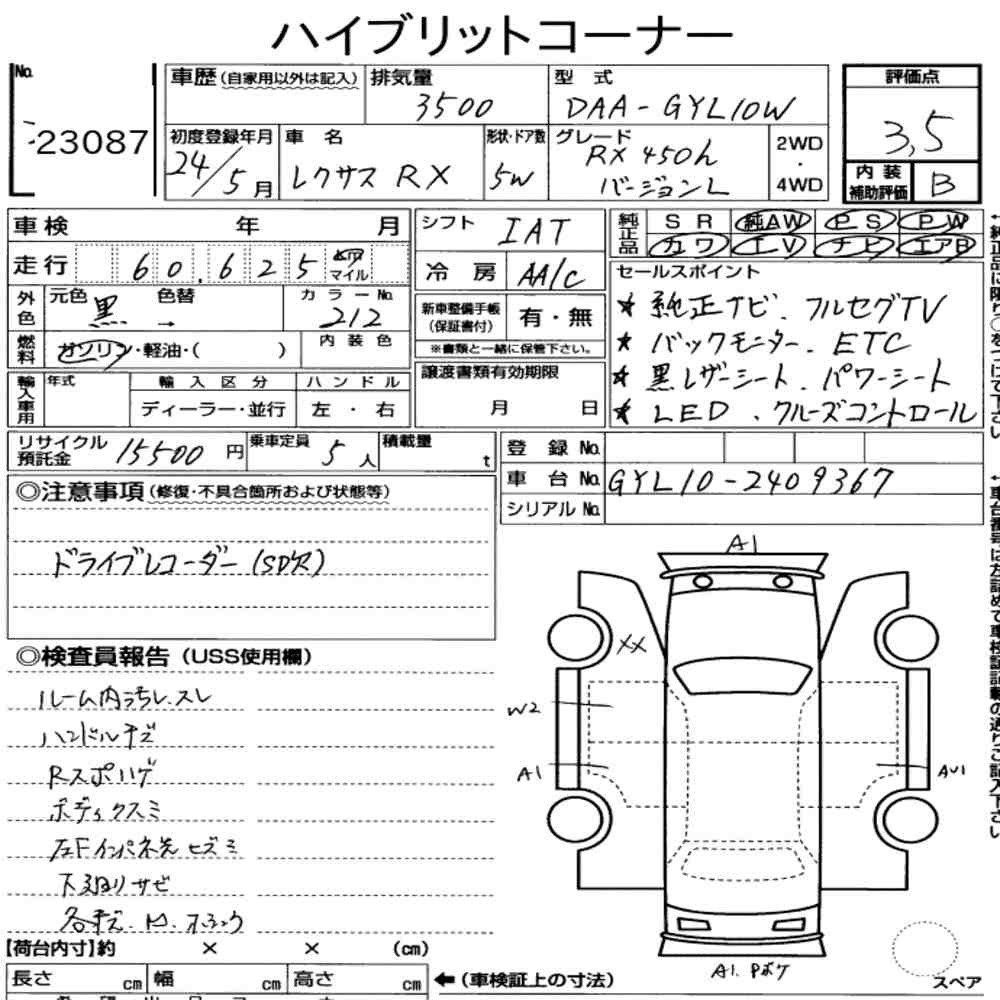 ハイブリットコーナー
No.
23087
車歴(自家用以外は記入)
排気量
3500
型 式
DAA-GYL10W
評価点
3,5
内装補助評価
B
初度登録年月
24/5月
車 名
レクサス RX
形状・ドア数
5W
グレード
RX 450h
バージョンL
2WD
・
4WD
車検 年 月
シフト
IAT
純正品
SR 純AW PS PW
カワ TV ナビ エアB
走行
60,625
マイル
冷房
AA/C
セールスポイント
★ 純正ナビ、フルセグTV
★ バックモニター、ETC
★ 黒レザーシート、パワーシート
★ LED、クルーズコントロール
外色
元色
黒
→
色替
カラーNo.
212
新車整備手帳
(保証書付)
有・無
※書類と一緒に保管下さい。
燃料
ガソリン・軽油・( )
内装色
輸入車用
年式
輸入区分
ディーラー・並行
ハンドル
左・右
譲渡書類有効期限
月 日
リサイクル預託金
15500円
乗車定員
5人
積載量
t
登録No.
車台No.
GYL10-2409367
シリアルNo.
◎注意事項(修復・不具合箇所および状態等)
ドライブレコーダー(SD欠)
◎検査員報告(USS使用欄)
ルーム内うちし、スレ
ハンドルキズ
Rスポハゲ
ボディクスミ
左Fインパネ先ヒズミ
下廻りサビ
A1
XX
W2
A1
AU1
A1. Pボケ
スペア
【荷台内寸】約 × × (cm)
長さ cm 幅 cm 高さ cm
←(車検証上の寸法)